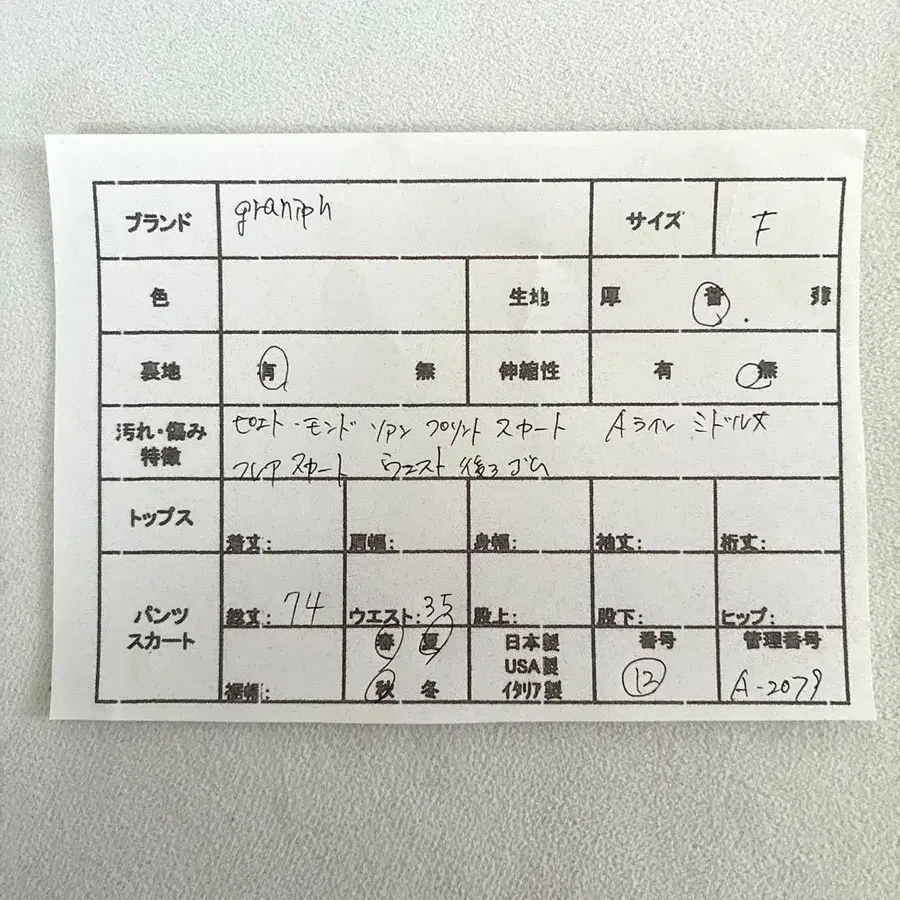 ブランド graniph サイズ F
色 生地 厚 普 薄
裏地 有 無 伸縮性 有 無
汚れ・傷み ピエト・モンドリアン プリント スカート Aライン ミドル丈
特徴 フレア スカート ウエスト 後ろゴム
トップス 着丈: 肩幅: 身幅: 袖丈: 裄丈:
パンツ スカート 総丈: 74 ウエスト: 35 股上: 股下: ヒップ:
裾幅: 春 夏 秋 冬 日本製 USA製 イタリア製 番号 管理番号 A-2079